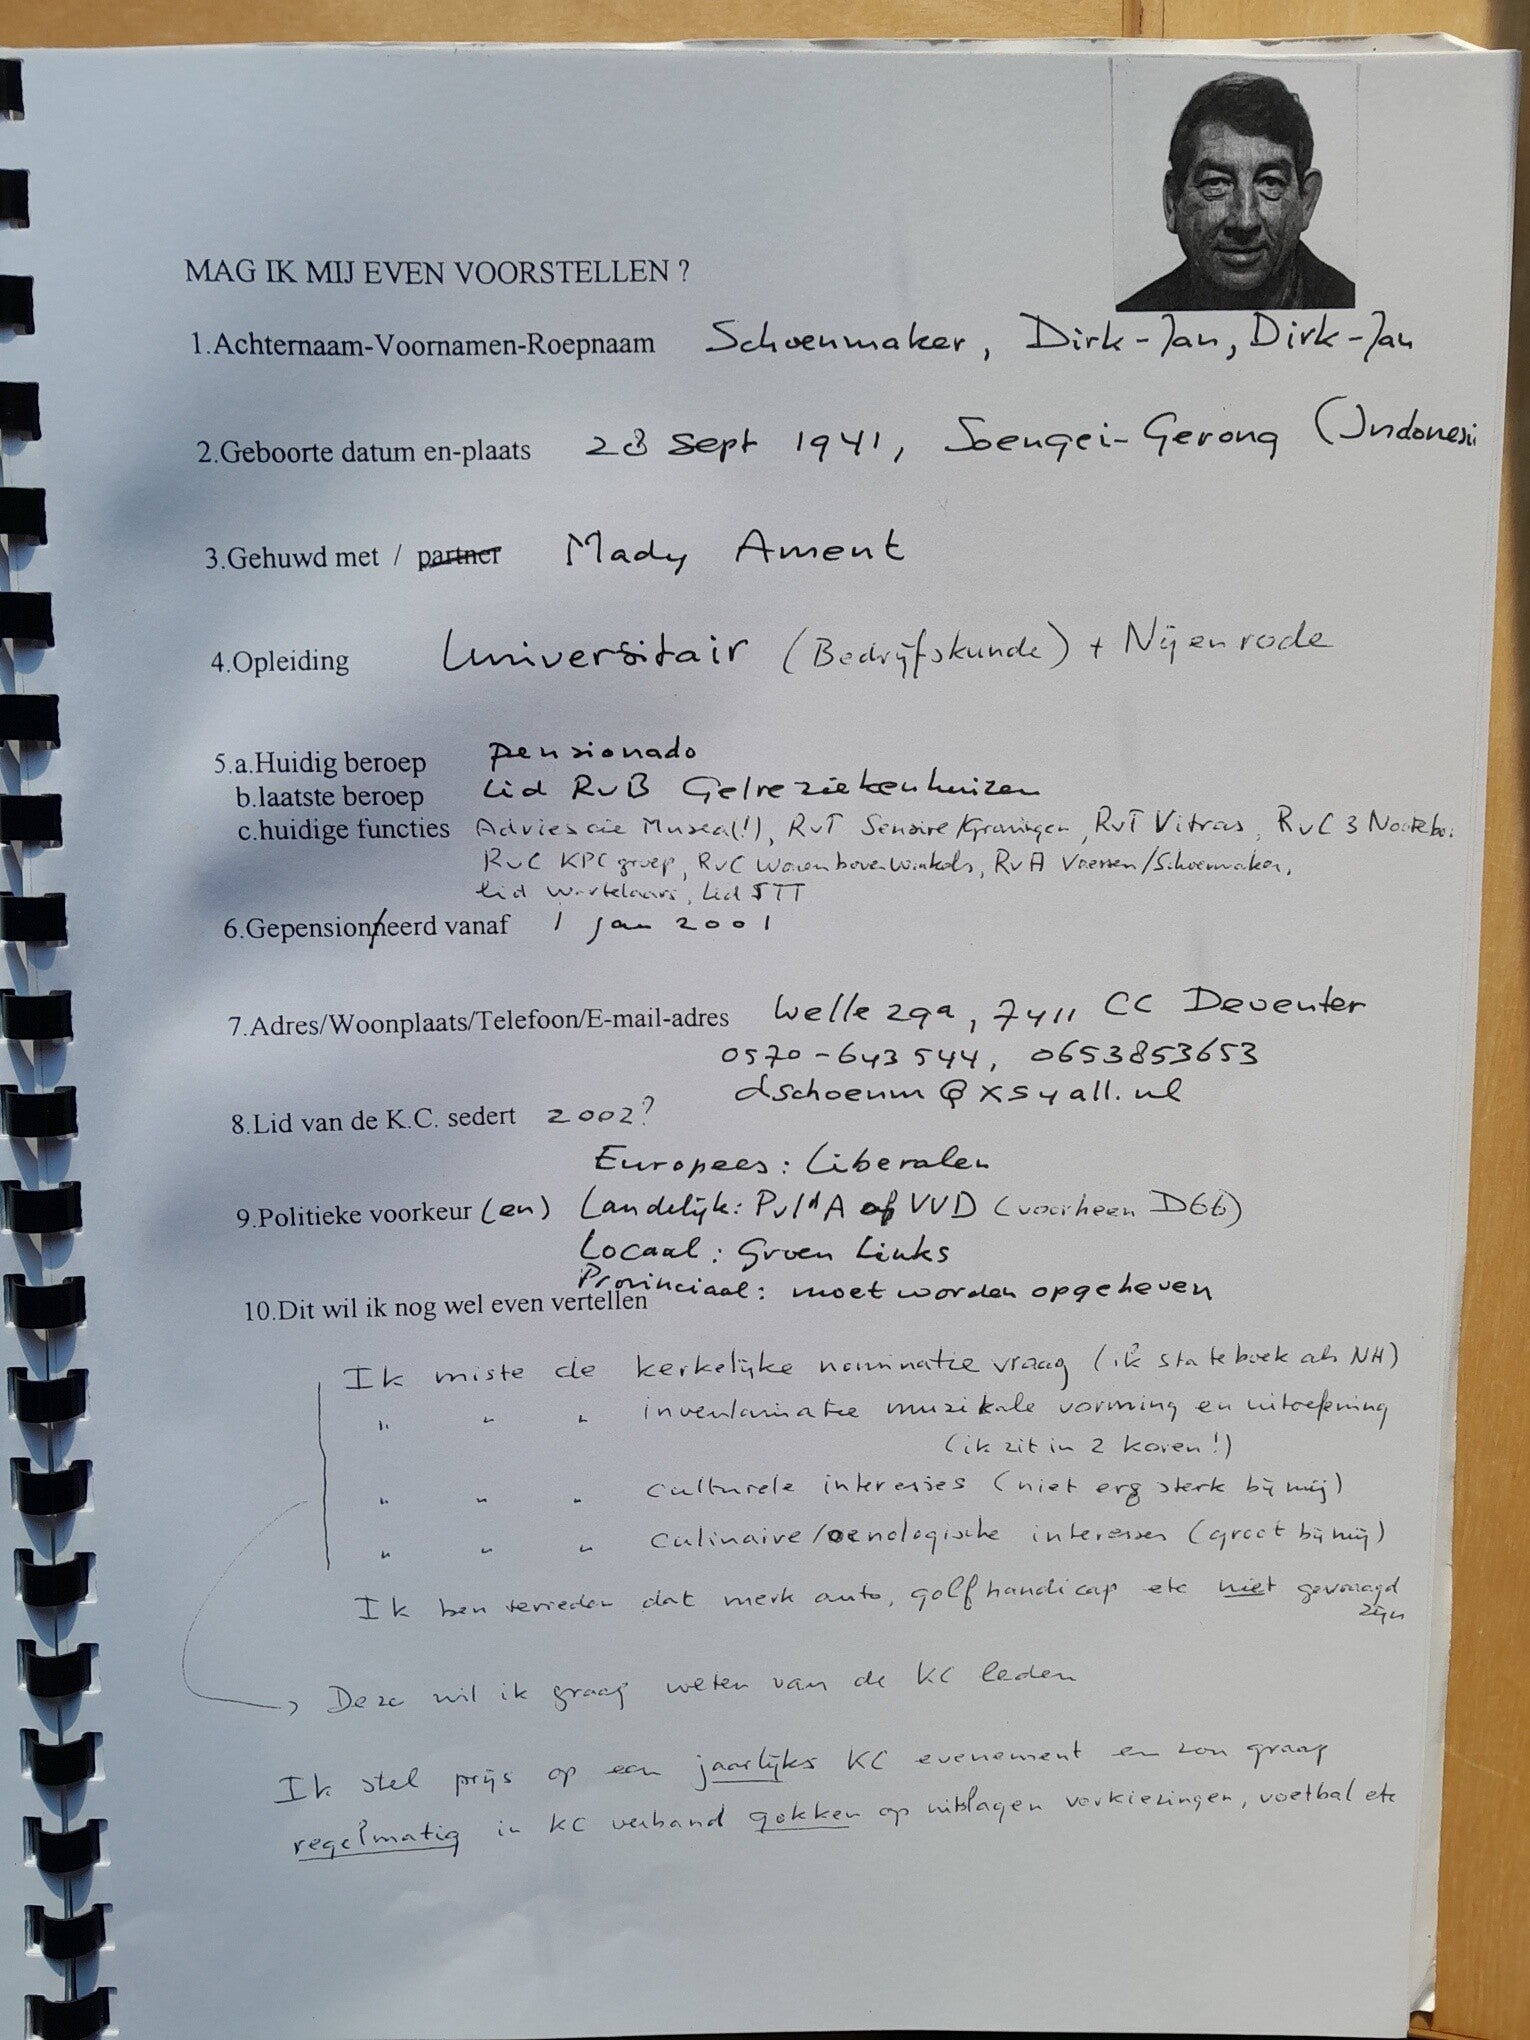 MAG IK MIJ EVEN VOORSTELLEN ?
1.Achternaam-Voornamen-Roepnaam Schoenmaker, Dirk-Jan, Dirk-Jan
2.Geboorte datum en-plaats 28 Sept 1941, Soengei-Gerong (Indonesi
3.Gehuwd met / partner Mady Ament
4.Opleiding Universitair (Bedrijfskunde) + Nijenrode
5.a.Huidig beroep pensionado
b.laatste beroep Lid RvB Gelreziekenhuizen
c.huidige functies Adviescie Musea(!), RvT Sensire/Groningen, RvT Vitras, RvC 3 Notebo.
RvC KPC groep, RvC Wonen boven Winkels, RvA Voessen/Schoenmaker,
Lid Wortelaars, Lid STT
6.Gepensioneerd vanaf 1 jan 2001
7.Adres/Woonplaats/Telefoon/E-mail-adres Welle 29a, 7411 CC Deventer
0570-643544, 0653853653
dschoenm@xs4all.nl
8.Lid van de K.C. sedert 2002?
Europees: Liberalen
9.Politieke voorkeur (en) Landelijk: PvdA of VVD (voorheen D66)
Locaal: Groen Links
Provinciaal: moet worden opgeheven
10.Dit wil ik nog wel even vertellen
Ik miste de kerkelijke nominatie vraag (ik sta te boek als NH)
" " " inventarisatie muzikale vorming en uitoefening
(ik zit in 2 koren!)
" " " culturele interesses (niet erg sterk bij mij)
" " " culinaire/oenologische interesses (groot bij mij)
Ik ben tevreden dat merk auto, golfhandicap etc niet gevraagd
zijn
Deze wil ik graag weten van de KC leden
Ik stel prijs op een jaarlijks KC evenement en zou graag
regelmatig in KC verband gokken op uitslagen verkiezingen, voetbal etc